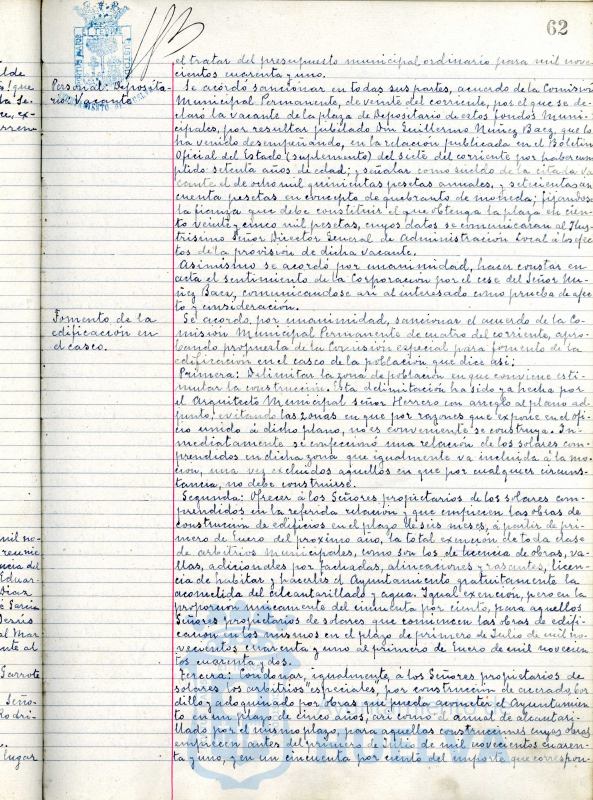 62
el tratar del presupuesto municipal ordinario para mil nove-
cientos cuarenta y uno.
Personal: Deposita-
rio: Vacante.
Se acordó sancionar en todas sus partes, acuerdo de la Comisión
Municipal Permanente, de veinte del corriente, por el que se de-
claró la vacante de la plaza de Depositario de estos fondos Muni-
cipales, por resultar jubilado Don Guillermo Núñez Baez, que lo
ha venido desempeñando, en la relación publicada en el Boletín
Oficial del Estado (suplemento) del siete del corriente por haber cum
plido setenta años de edad; y señalar como sueldo de la citada va
cante el de ocho mil quinientas pesetas anuales, y setecientas cin
cuenta pesetas en concepto de quebranto de moneda; fijándose
la fianza que debe constituir el que obtenga la plaza en cien-
to veinte y cinco mil pesetas, cuyos datos se comunicarán al Ilus-
trísimo Señor Director General de Administración Local a los efec-
tos de la provisión de dicha vacante.
Asimismo se acordó por unanimidad, hacer constar en
acta el sentimiento de la Corporación por el cese del Señor Nú-
ñez Baez, comunicándose así al interesado como prueba de afec
to y consideración.
Fomento de la
edificación en
el casco.
Se acordó, por unanimidad, sancionar el acuerdo de la Co-
misión Municipal Permanente de cuatro del corriente, apro-
bando propuesta de la Comisión especial para fomento de la
edificación en el casco de la población que dice así:
Primera: Delimitar la zona de población en que conviene esti-
mular la construcción. Esta delimitación ha sido ya hecha por
el Arquitecto Municipal señor Herrero con arreglo al plano ad-
junto, evitando las zonas en que por razones que expone en el ofi-
cio unido á dicho plano, no es conveniente se construya. In-
mediatamente se confeccionó una relación de los solares com-
prendidos en dicha zona que igualmente va incluida á la mo-
ción, una vez excluidos aquellos en que por cualquier circuns-
tancia, no debe construirse.
Segunda: Ofrecer á los Señores propietarios de los solares com-
prendidos en la referida relación y que empiecen las obras de
construcción de edificios en el plazo de seis meses, á partir de pri-
mero de Enero del proximo año, la total exención de toda clase
de arbitrios municipales, como son los de licencia de obras, va-
llas, adicionales por fachadas, alineaciones y rasantes, licen-
cia de habitar y hacerles el Ayuntamiento gratuitamente la
acometida del alcantarillado y agua. Igual exención, pero en la
proporción unicamente del cincuenta por ciento, para aquellos
Señores propietarios de solares que comiencen las obras de edifi-
cación en los mismos en el plazo de primero de Julio de mil no-
vecientos cuarenta y uno al primero de Enero de mil novecien-
tos cuarenta y dos.
Tercera: Condonar, igualmente, á los Señores propietarios de
solares los arbitrios "especiales", por construcción de acerado, bor
dillo y adoquinado por obras que pueda acometer el Ayuntamien
to en un plazo de cinco años, así como el anual de alcantari-
llado por el mismo plazo, para aquellas construcciones cuyas obras
empiecen antes del primero de Julio de mil novecientos cuaren-
ta y uno, y en un cincuenta por ciento del importe que correspon-